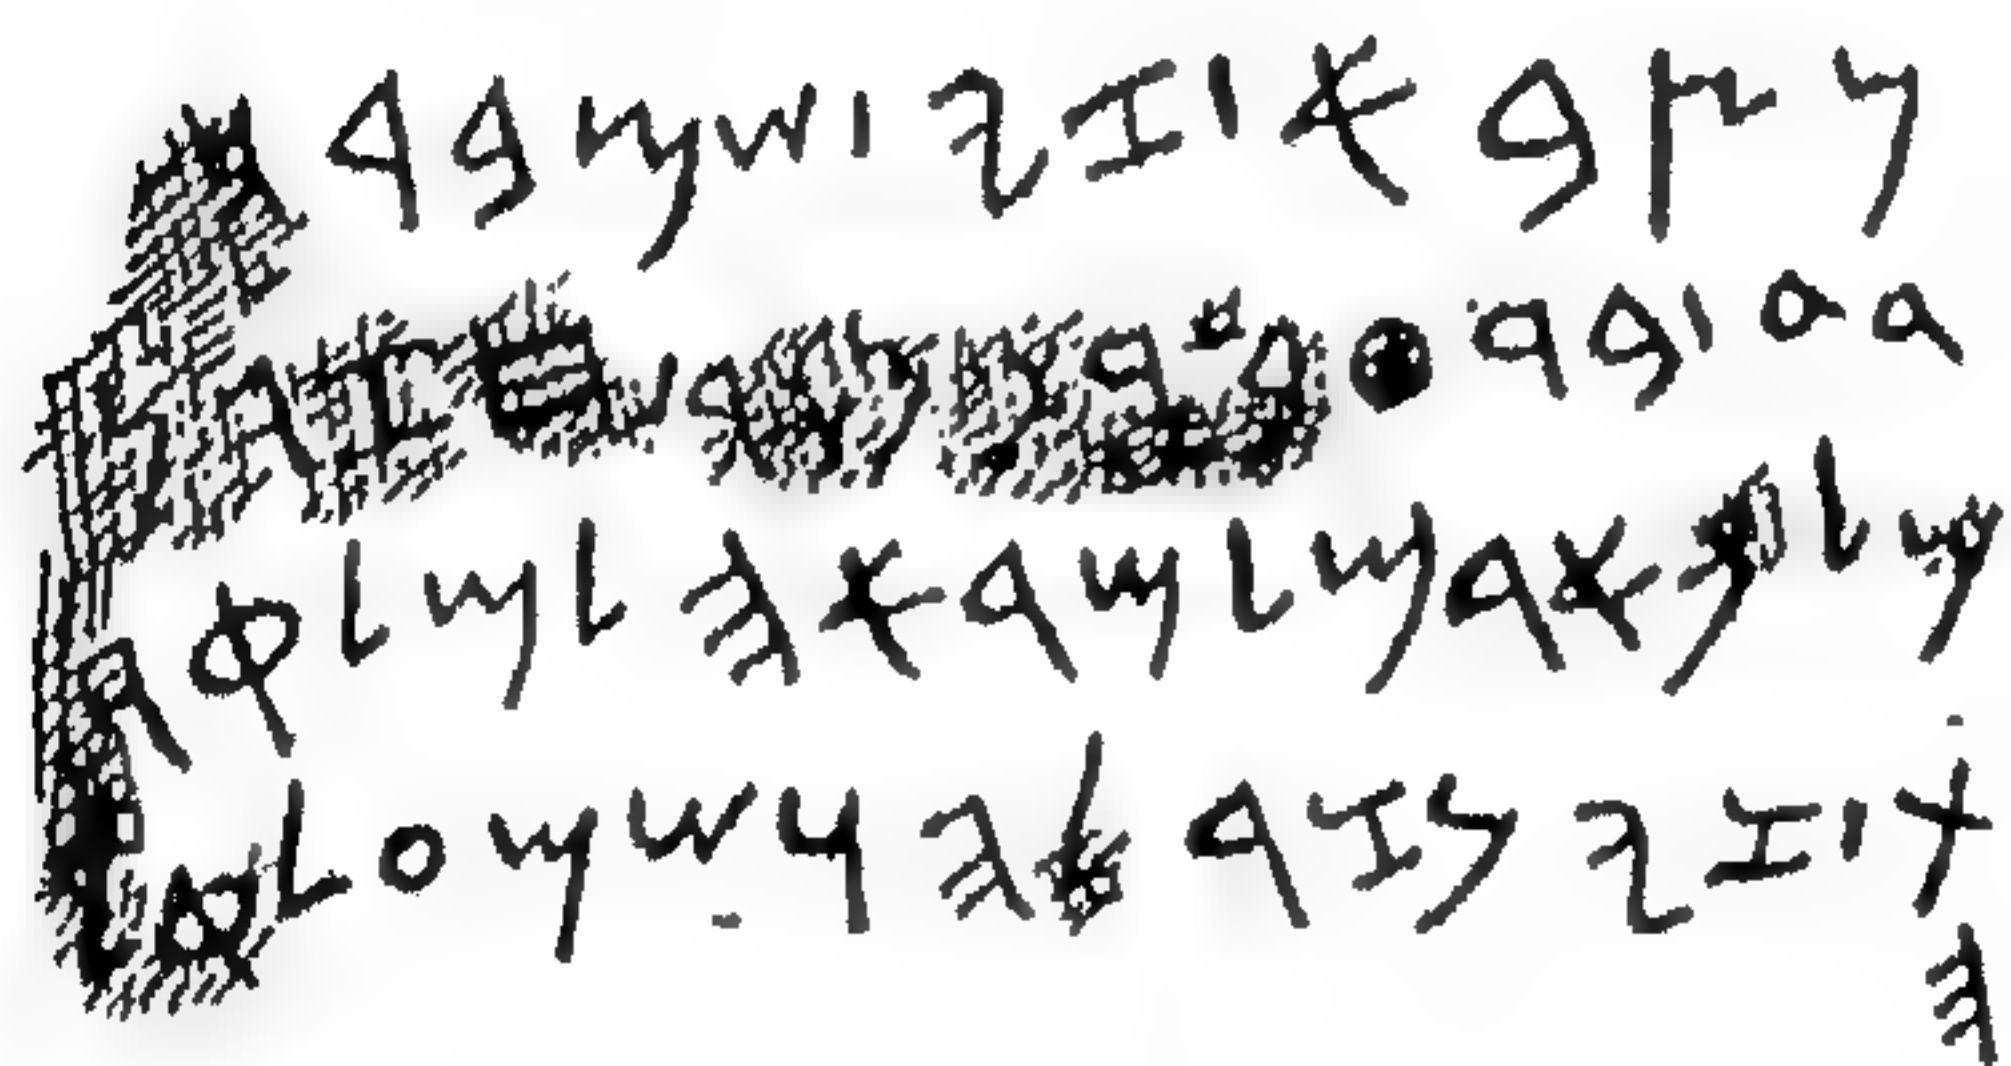 𐤍𐤑𐤁𐤀 𐤟 𐤆𐤉 𐤟 𐤔𐤌 𐤁𐤓
𐤃𐤃 𐤟 𐤁𐤓
𐤌𐤋𐤊 𐤀𐤓𐤌 𐤋𐤌𐤓𐤀𐤄 𐤋𐤌𐤋𐤒𐤓
𐤕 𐤟 𐤆𐤉 𐤍𐤆𐤓 𐤋𐤄 𐤅𐤔𐤌𐤏 𐤋𐤒𐤋
𐤄